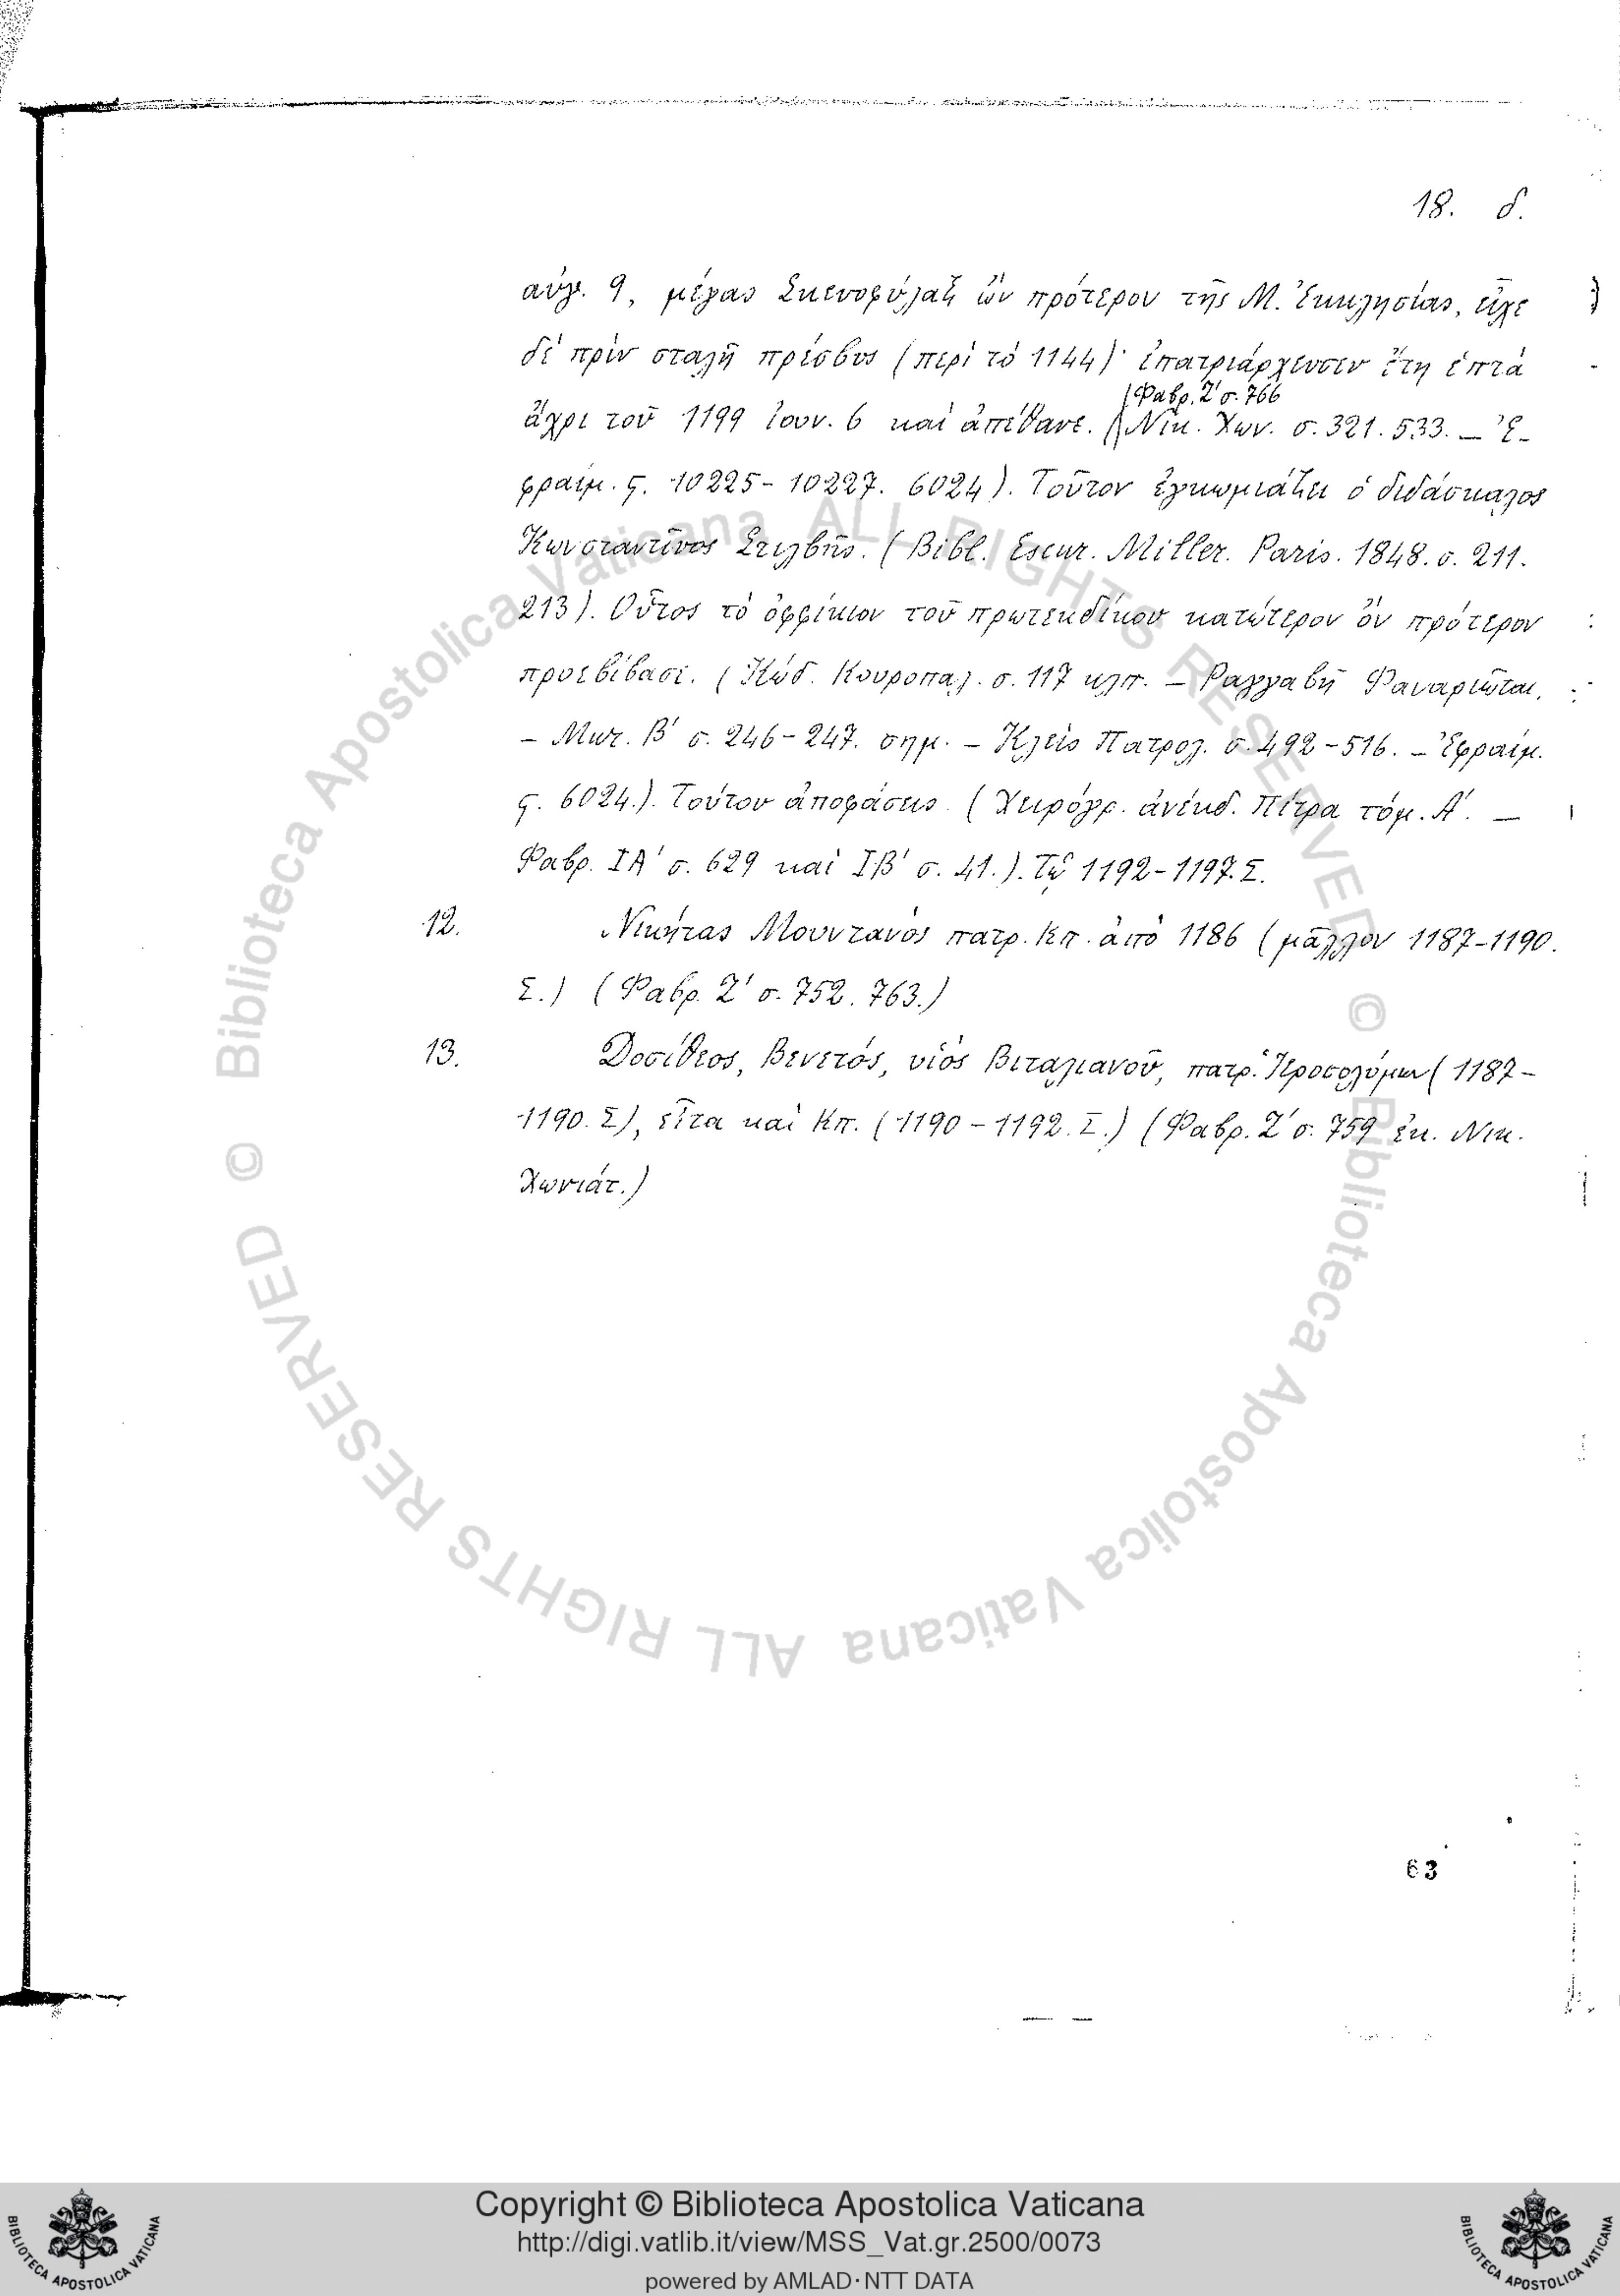 18. δ.
αὐγ. 9, μέγας Σκευοφύλαξ ὢν πρότερον τῆς Μ. Ἐκκλησίας, εἶχε
δὲ πρὶν σταλῆ πρέσβυς (περὶ τὸ 1144)· ἐπατριάρχευσεν ἔτη ἑπτὰ
(Φαβρ. Ζ' σ. 766
ἄχρι τοῦ 1199 Ἰουν. 6 καὶ ἀπέθανε. (Νικ. Χων. σ. 321. 533. — Ἐ-
φραίμ. ς. 10225-10227. 6024). Τοῦτον ἐγκωμιάζει ὁ διδάσκαλος
Κωνσταντῖνος Στιλβῆς. (Bibl. Escur. Miller. Paris. 1848. σ. 211.
213). Οὗτος τὸ ὀφφίκιον τοῦ πρωτεκδίκου κατώτερον ὂν πρότερον
προεβίβασε. (Κώδ. Κουροπαλ. σ. 117 κλπ. — Ραγγαβῆ Φαναριῶται.
— Μων. Β' σ. 246-247. σημ. — Κλεὶς Πατρολ. σ. 492-516. — Ἐφραίμ.
ς. 6024.). Τούτου ἀποφάσεις. (Χειρόγρ. ἀνέκδ. Πίτρα τόμ. Α'. —
Φαβρ. ΙΑ' σ. 629 καὶ ΙΒ' σ. 41.). Τῷ 1192-1197. Σ.
12. Νικήτας Μουντανὸς πατρ. Κπ. ἀπὸ 1186 (μᾶλλον 1187-1190.
Σ.) (Φαβρ. Ζ' σ. 752. 763.)
13. Δοσίθεος, Βενετός, υἱὸς Βιταλιανοῦ, πατρ. Ἱεροσολύμων (1187-
1190. Σ), εἶτα καὶ Κπ. (1190-1192. Σ.) (Φαβρ. Ζ' σ. 759 ἐκ. Νικ.
Χωνιάτ.)
63
© Biblioteca Apostolica Vaticana ALL RIGHTS RESERVED
© Biblioteca Apostolica Vaticana ALL RIGHTS RESERVED
Copyright © Biblioteca Apostolica Vaticana
http://digi.vatlib.it/view/MSS_Vat.gr.2500/0073
powered by AMLAD·NTT DATA
BIBLIOTECA APOSTOLICA VATICANA
BIBLIOTECA APOSTOLICA VATICANA